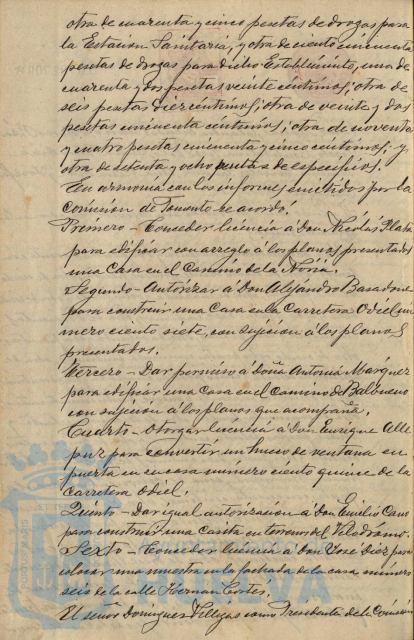 otra de cuarenta y cinco pesetas de drogas para
la Estacion Sanitaria, y otra de ciento cincuenta
pesetas de drogas para dicho Establecimiento, una de
cuarenta y dos pesetas veinte centimos; otra de
seis pesetas diez centimos; otra de veinte y dos
pesetas cincuenta centimos; otra de noventa
y cuatro pesetas cincuenta y cinco centimos; y
otra de setenta y ocho pesetas de especificos.
En armonia con los informes emitidos por la
Comision de Fomento se acordó:
Primero - Conceder licencia á don Nicolás Plata
para edificar con arreglo á los planos presentados
una casa en el Camino de la Noria.
Segundo - Autorizar á Don Alejandro Basadone
para construir una Casa en la Carretera Odiel nu
mero ciento siete, con sujecion á los planos
presentados.
Tercero - Dar permiso á Doña Antonia Márquez
para edificar una casa en el Camino de Balbueno
con sujecion á los planos que acompaña.
Cuarto - Otorgar licencia á Don Enrique Alle
puz para convertir un hueco de ventana en
puerta en su casa número ciento quince de la
Carretera Odiel.
Quinto - Dar igual autorización á Don Emilio Cano
para construir una casita en terrenos del Velodromo.
Sexto - Conceder licencia á don José Diez para
colocar una muestra en la fachada de la casa número
seis de la calle Hernan Cortés.
El señor Dominguez Villegas como Presidente de la Comision
HUELVA